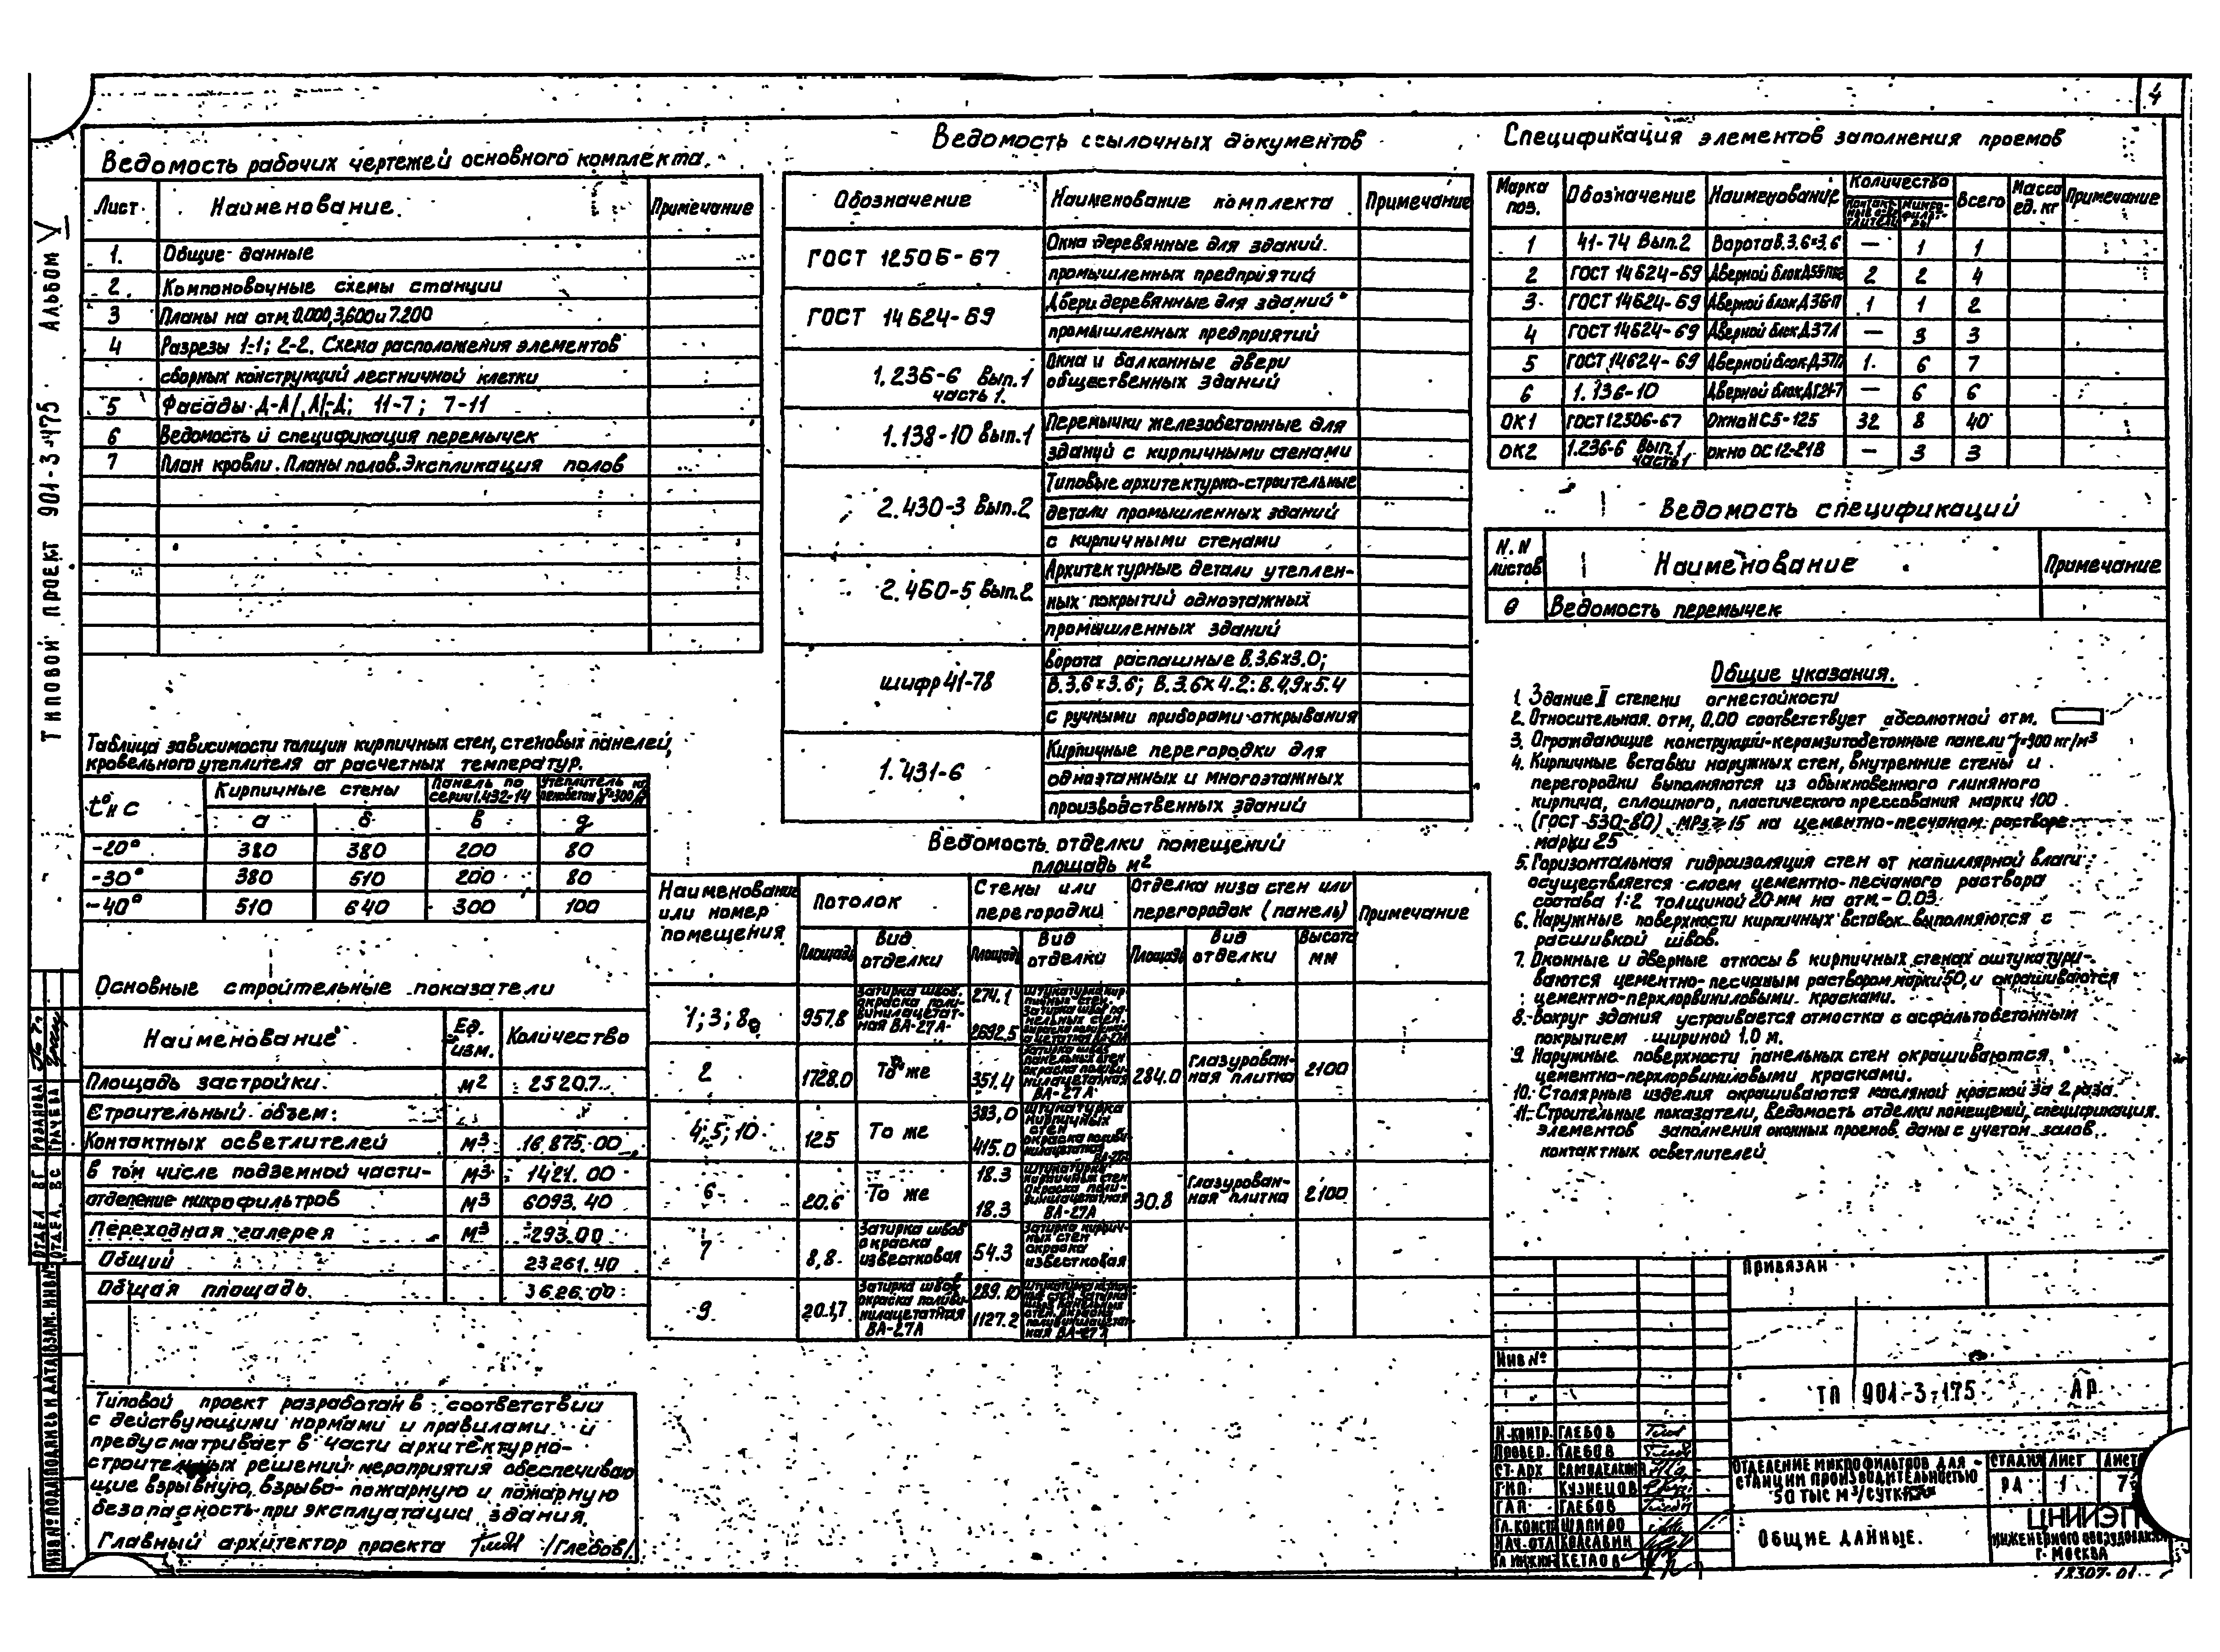 4
ТИПОВОЙ ПРОЕКТ 901-3-175 АЛЬБОМ V
Ведомость рабочих чертежей основного комплекта
Лист Наименование Примечание
1. Общие данные
2. Компоновочные схемы станции
3 Планы на отм. 0.000, 3,600 и 7.200
4 Разрезы 1-1; 2-2. Схема расположения элементов
сборных конструкций лестничной клетки
5 Фасады Д-А/, А/-Д; 11-7; 7-11
6 Ведомость и спецификация перемычек
7 План кровли. Планы полов. Экспликация полов
Таблица зависимости толщин кирпичных стен, стеновых панелей,
кровельного утеплителя от расчетных температур.
t°н С Кирпичные стены Панель по серии 1.432-14 Утеплитель
а б в g
-20° 380 380 200 80
-30° 380 510 200 80
-40° 510 640 300 100
Основные строительные показатели
Наименование Ед. изм. Количество
Площадь застройки м2 2520.7
Строительный объем:
Контактных осветлителей м3 16 875.00
в том числе подземной части м3 1421.00
отделение микрофильтров м3 6093.40
Переходная галерея м3 293.00
Общий 23261.40
Общая площадь 3626.00
Типовой проект разработан в соответствии
с действующими нормами и правилами и
предусматривает в части архитектурно-
строительных решений мероприятия обеспечиваю
щие взрывную, взрыво-пожарную и пожарную
безопасность при эксплуатации здания.
Главный архитектор проекта /Глебов/
Ведомость ссылочных документов
Обозначение Наименование комплекта Примечание
ГОСТ 12506-67 Окна деревянные для зданий
промышленных предприятий
ГОСТ 14624-69 Двери деревянные для зданий
промышленных предприятий
1.236-6 Вып.1 часть 1. Окна и балконные двери
общественных зданий
1.138-10 Вып.1 Перемычки железобетонные для
зданий с кирпичными стенами
2.430-3 Вып.2 Типовые архитектурно-строительные
детали промышленных зданий
с кирпичными стенами
2.460-5 Вып.2 Архитектурные детали утеплен-
ных покрытий одноэтажных
промышленных зданий
шифр 41-78 Ворота распашные В.3.6x3.0;
В.3.6x3.6; В.3.6x4.2; В.4,9x5.4
с ручными приборами открывания
1.431-6 Кирпичные перегородки для
одноэтажных и многоэтажных
производственных зданий
Ведомость отделки помещений
площадь м2
Наименование или номер помещения Потолок Стены или перегородки Отделка низа стен или перегородок (панель) Примечание
Площадь Вид отделки Площадь Вид отделки Площадь Вид отделки Высота мм
1; 3; 8 957.8 Затирка швов. окраска поливинилацетатная ВА-27А 274.1 2692.5
2 1728.0 То же 351.4 284.0 Глазурован-
ная плитка 2100
4; 5; 10 125 То же 383,0 415.0
6 20.6 То же 18.3 18.3 30.8 Глазурован-
ная плитка 2100
7 8,8 Затирка швов окраска известковая 54.3 окраска известковая
9 Затирка швов окраска поливинилацетатная ВА-27А 289.10 1127.2
Спецификация элементов заполнения проемов
Марка поз. Обозначение Наименование Количество Всего Масса ед. кг Примечание
1 41-74 Вып.2 Ворота В.3.6x3.6 — 1 1
2 ГОСТ 14624-69 2 2 4
3 ГОСТ 14624-69 Дверной блок 1 1 2
4 ГОСТ 14624-69 Дверной блок Д37Л — 3 3
5 ГОСТ 14624-69 Дверной блок Д37П 1 6 7
6 1.136-10 Дверной блок — 6 6
ОК1 ГОСТ 12506-67 Окно НС5-125 32 8 40
ОК2 1.236-6 Вып.1 часть 1 окно ОС12-21В — 3 3
Ведомость спецификаций
N.N листов Наименование Примечание
Ведомость перемычек
Общие указания.
1. Здание II степени огнестойкости
2. Относительная отм. 0.00 соответствует абсолютной отм.
3. Ограждающие конструкции-керамзитобетонные панели γ=900 кг/м3
4. Кирпичные вставки наружных стен, внутренние стены и
перегородки выполняются из обыкновенного глиняного
кирпича, сплошного, пластического прессования марки 100
(ГОСТ-530-80) МРз≥15 на цементно-песчаном растворе
марки 25
5. Горизонтальная гидроизоляция стен от капиллярной влаги
осуществляется слоем цементно-песчаного раствора
состава 1:2 толщиной 20 мм на отм.-0.03.
6. Наружные поверхности кирпичных вставок выполняются с
расшивкой швов.
7. Оконные и дверные откосы в кирпичных стенах оштукатури-
ваются цементно-песчаным раствором марки 50, и окрашиваются
цементно-перхлорвиниловыми красками.
8. Вокруг здания устраивается отмостка с асфальтобетонным
покрытием шириной 1.0 м.
9. Наружные поверхности панельных стен окрашиваются
цементно-перхлорвиниловыми красками.
10. Столярные изделия окрашиваются масляной краской за 2 раза.
11. Строительные показатели, ведомость отделки помещений, спецификация
элементов заполнения оконных проемов даны с учетом залов
контактных осветлителей
ПРИВЯЗАН
ИНВ №
ТП 901-3-175 АР
Н.КОНТР. ГЛЕБОВ
ПРОВЕР. ГЛЕБОВ
СТ.АРХ САМОДЕЛКИНА
ГИП КУЗНЕЦОВ
ГАП ГЛЕБОВ
ГЛ.КОНСТ ШАПИРО
НАЧ.ОТД КРАСАВИН
ГЛ ИНЖИН КЕТАОВ
ОТДЕЛЕНИЕ МИКРОФИЛЬТРОВ ДЛЯ
СТАНЦИИ ПРОИЗВОДИТЕЛЬНОСТЬЮ
50 ТЫС М3/СУТКИ
СТАДИЯ ЛИСТ
РА 1 7
ОБЩИЕ ДАННЫЕ.
ЦНИИЭП
ИНЖЕНЕРНОГО ОБОРУДОВАНИЯ
Г. МОСКВА
18307-01
ОТДЕЛ ВГ РОЗАНОВА
ОТДЕЛ. ВС ГРАЧЕВА
ИНВ № ПОДЛ ПОДПИСЬ И ДАТА ВЗАМ. ИНВ №